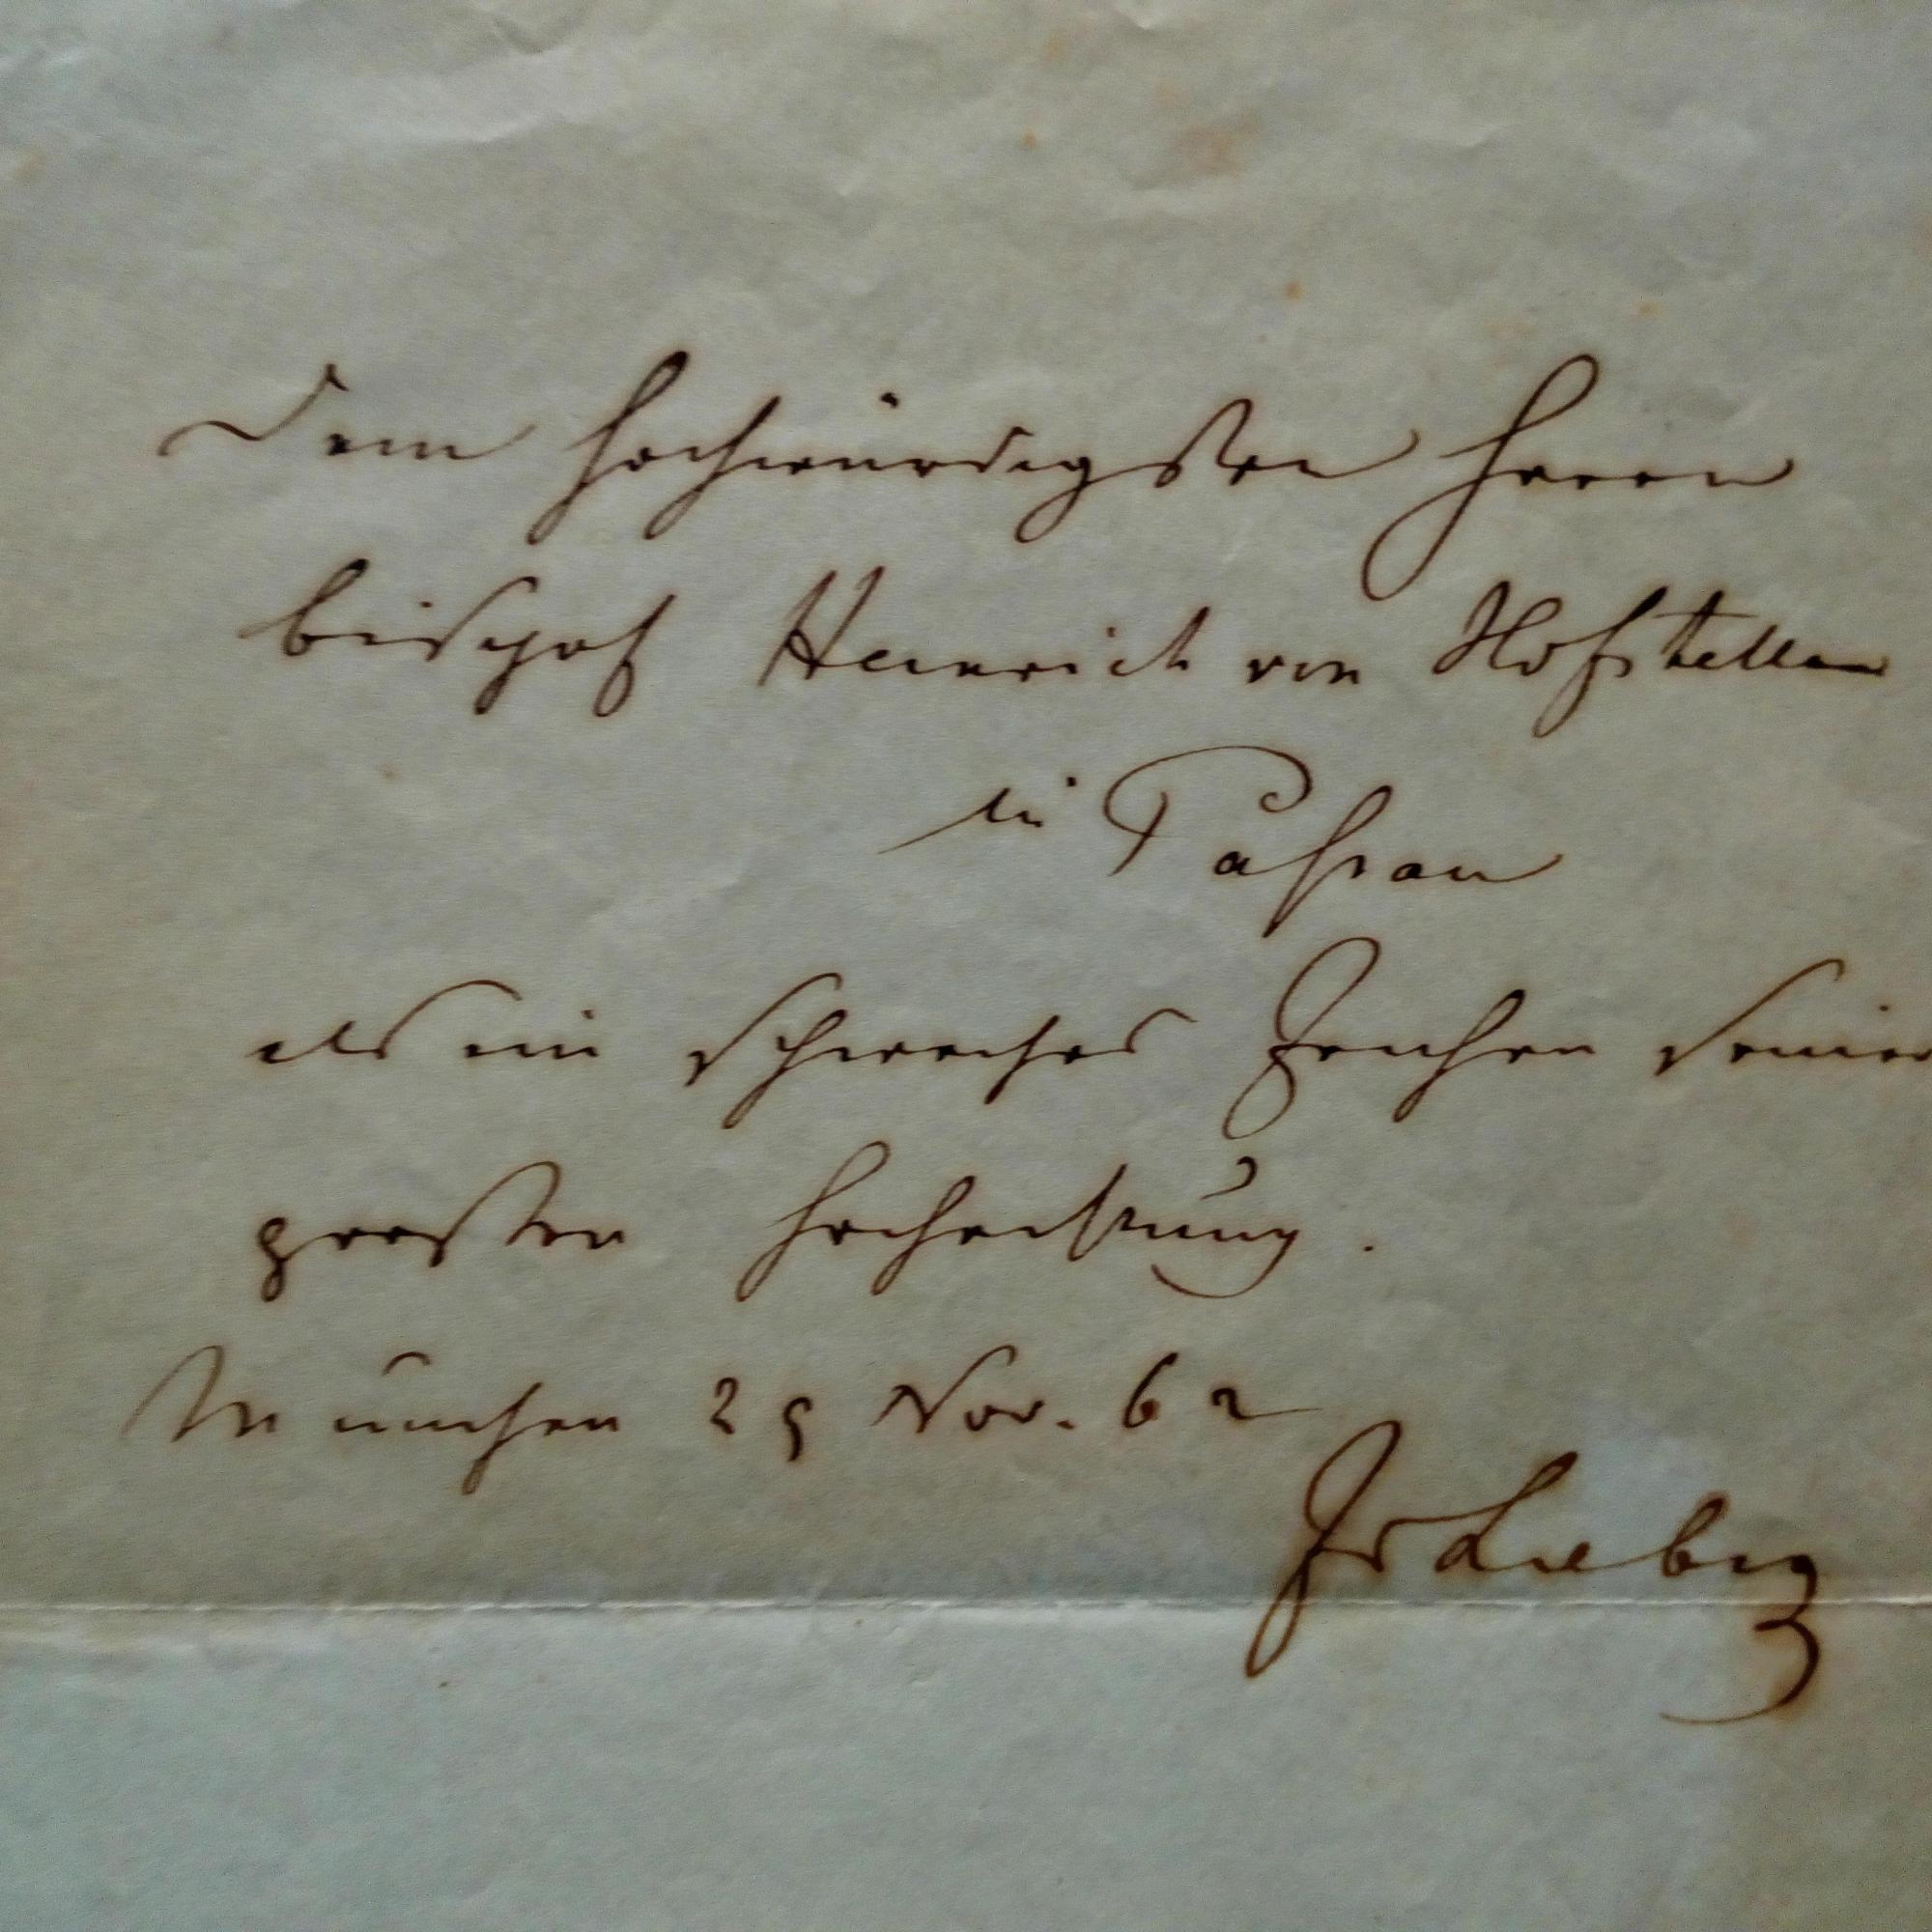 Dem hochwürdigsten Herrn
Bischof Heinrich von Hofstetter
in Paßau
als ein schwaches Zeichen seiner
großen Hochachtung.
München 29 Nov. 62
Jr Liebig